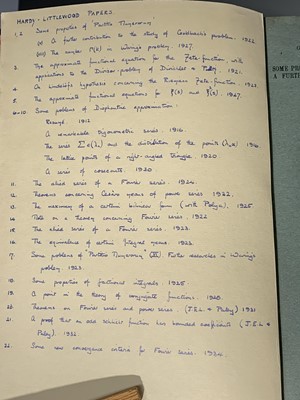 HARDY - LITTLEWOOD PAPERS.
1,2 Some properties of Partitio Numerorum
(v) A further contribution to the study of Goldbach's problem. 1922.
(vi) The number Γ(k) in Waring's problem. 1927.
3. The approximate functional equation for the Zeta-function with
applications to the Divisor-problem of Dirichlet & Piltz. 1921.
4. On Lindelöf's hypothesis concerning the Riemann Zeta-function
5. The approximate functional equations for ζ(s) and ζ²(s). 1927.
6-10 Some problems of Diophantine approximation:
1912
A remarkable trigonometric series. 1916.
The series and the distribution of the points
The lattice points of a right-angled triangle. 1920
A series of cosecants. 1920.
11. The allied series of a Fourier series. 1924.
12. Theorems concerning Cesàro means of power series 1922.
13. The maximum of a certain bilinear form (with Polya). 1925.
14. Note on a theorem concerning Fourier series. 1922
15. The allied series of a Fourier series. 1923.
16. The equivalence of certain integral means. 1923.
17. Some problems of Partitio Numerorum Further researches in Waring's
problem. 1925.
18. Some properties of fractional integrals. 1925
19. A point in the theory of conjugate functions.
20. Theorems on Fourier series and power series. (J.E.L. & Paley) 1931
21. A proof that an odd schlicht function has bounded coefficients (J.E.L &
Paley). 1932.
22. Some new convergence criteria for Fourier series. 1934.
SOME PR
A FURTH